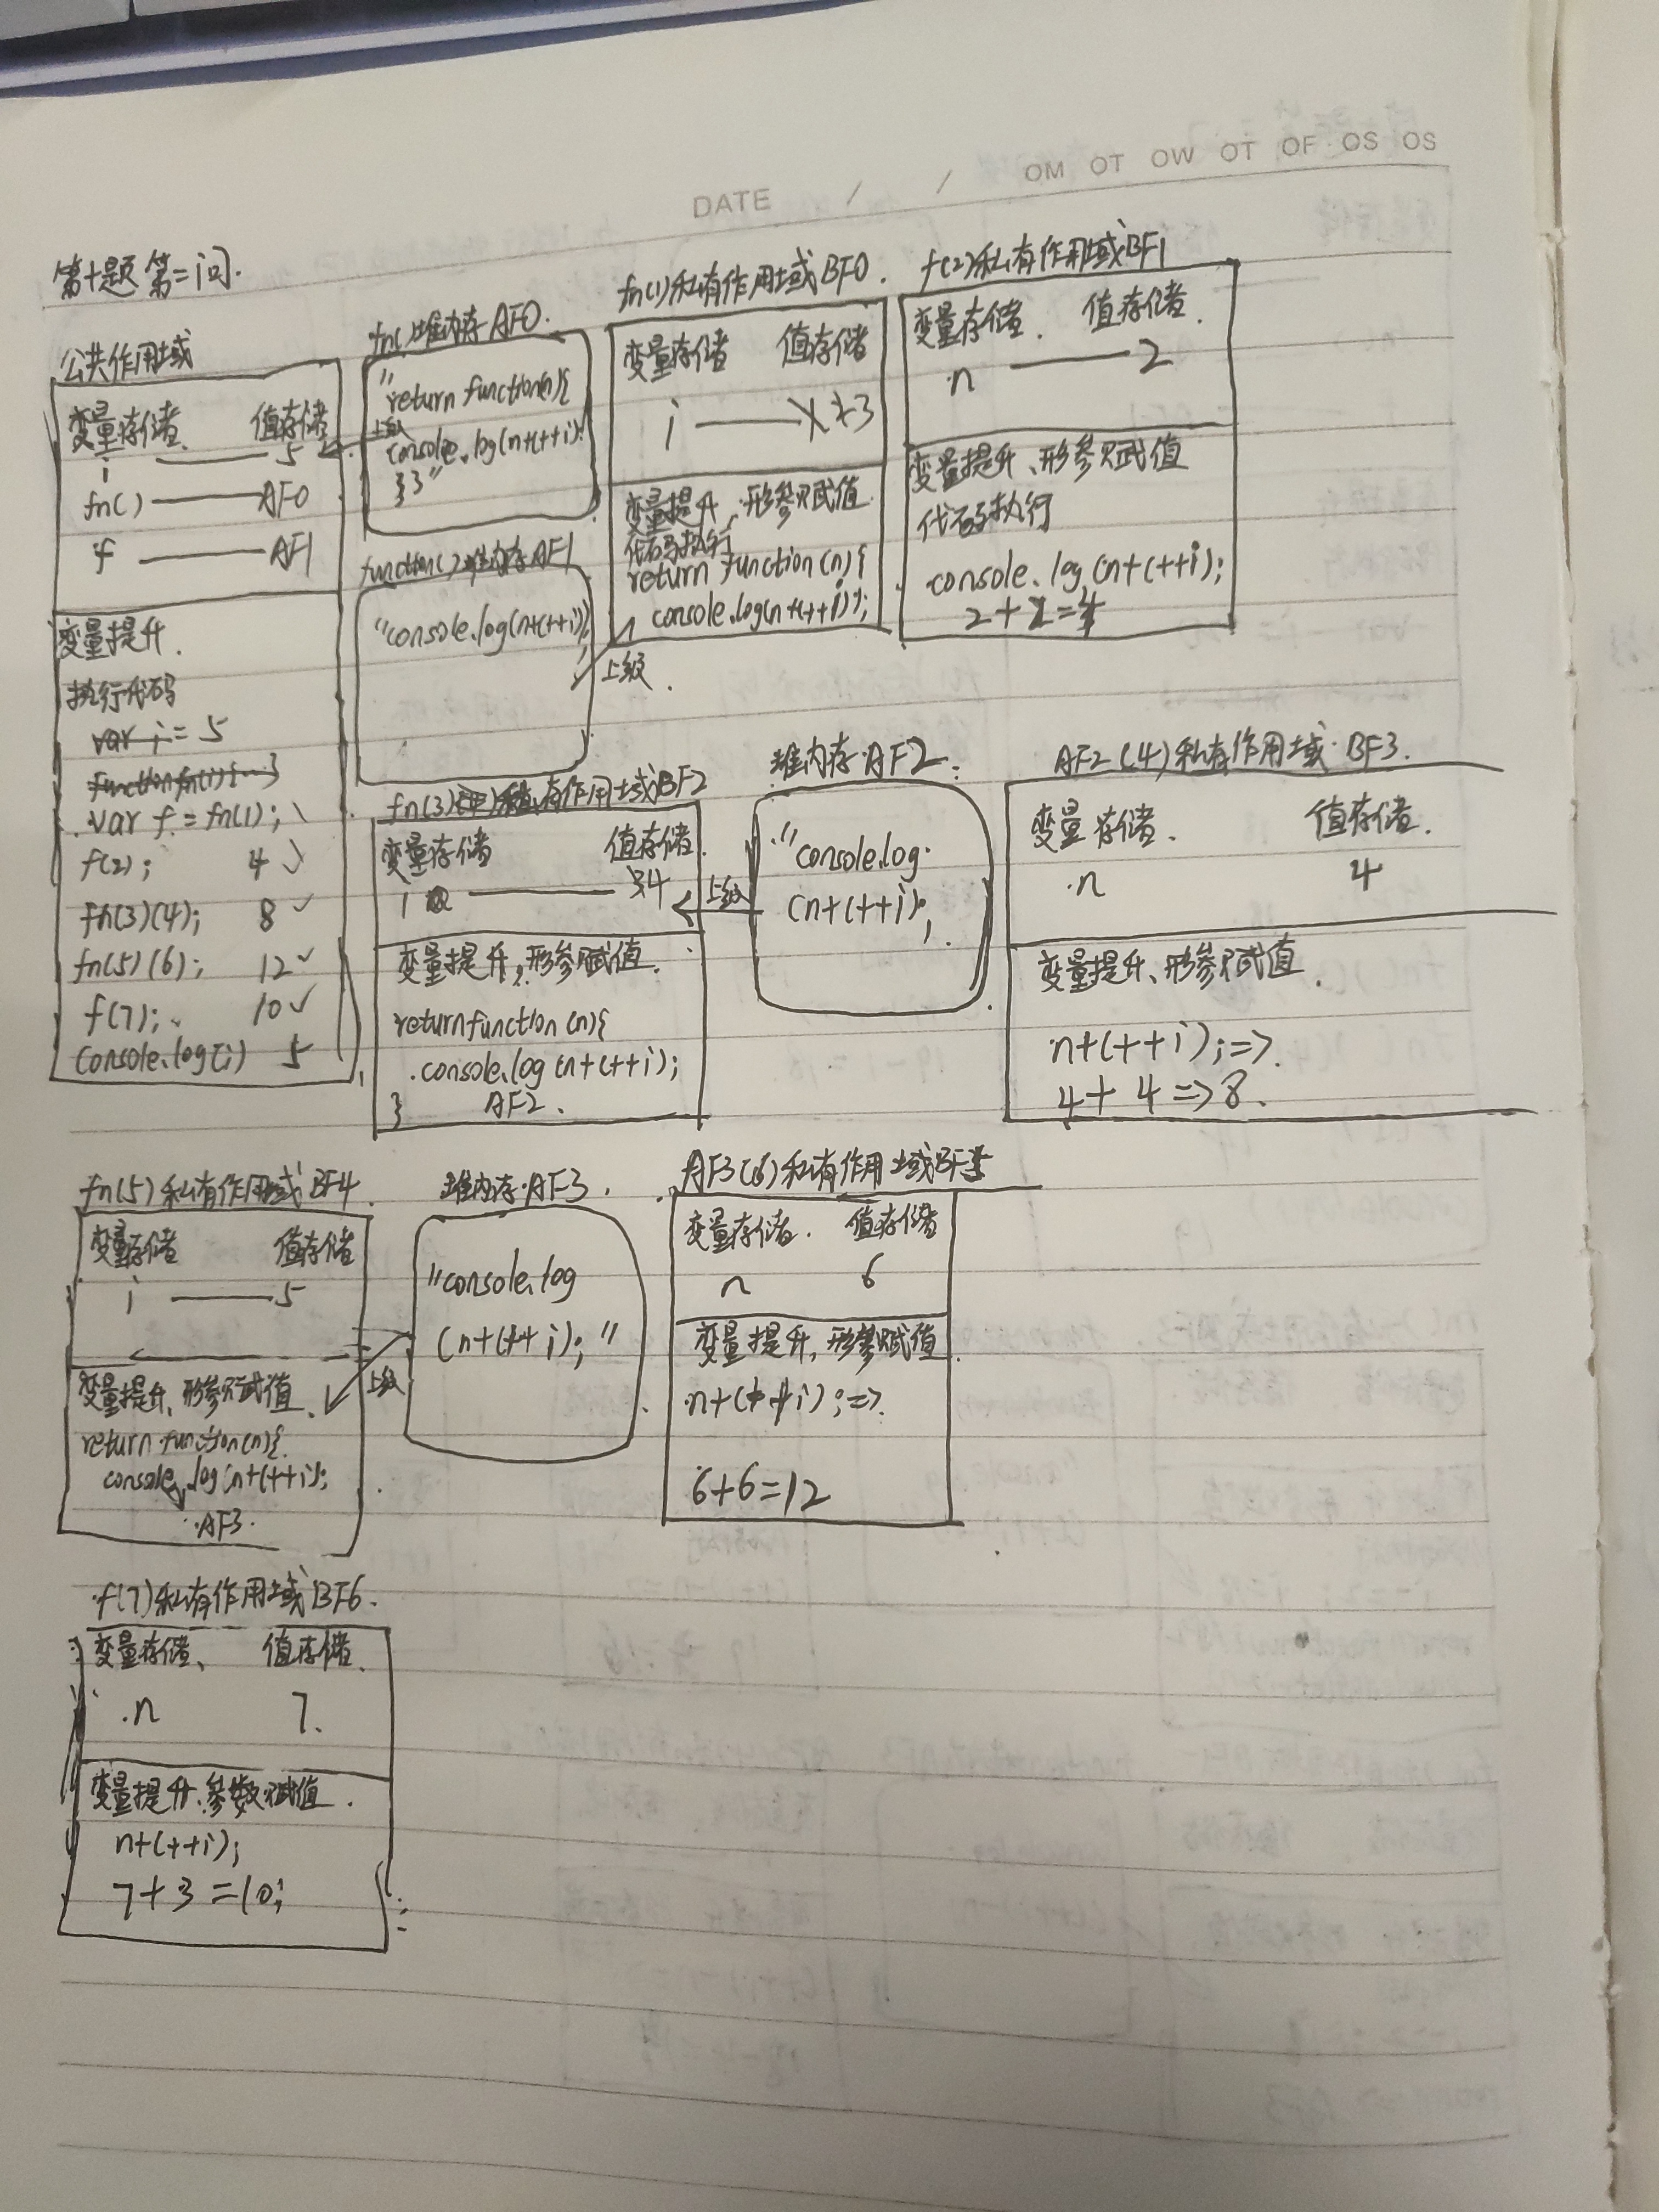 DATE / / OM OT OW OT OF OS OS
第十题第二问.
公共作用域
变量存储 值存储
i 5
fn() AF0
f AF1
变量提升.
执行代码
var i = 5
function fn(i){...}
var f = fn(1);
f(2); 4 ✓
fn(3)(4); 8 ✓
fn(5)(6); 12 ✓
f(7); 10 ✓
console.log(i) 5
fn()堆内存AF0.
"return function(n){
上级
console.log(n+(++i);
}}"
function()堆内存AF1
"console.log(n+(++i));
上级.
fn(1)私有作用域BF0.
变量存储 值存储
i 3
变量提升.形参赋值
代码执行
return function(n){
console.log(n+(++i));
f(2)私有作用域BF1
变量存储. 值存储.
n 2
变量提升、形参赋值
代码执行
console.log(n+(++i);
2+2=4
fn(3)私有作用域BF2
变量存储 值存储.
i 4
变量提升,形参赋值.
return function(n){
console.log(n+(++i);
} AF2.
堆内存.AF2.
"console.log.
(n+(++i);
上级
AF2(4)私有作用域.BF3.
变量存储. 值存储.
n 4
变量提升、形参赋值.
n+(++i);=>.
4+4=>8.
fn(5)私有作用域BF4.
变量存储 值存储
i 5
变量提升、形参赋值.
return function(n){.
console.log(n+(++i);
AF3.
堆内存.AF3.
"console.log
(n+(++i);"
上级
AF3(6)私有作用域BF5
变量存储. 值存储
n 6
变量提升,形参赋值.
n+(++i);=>.
6+6=12
f(7)私有作用域BF6.
变量存储、 值存储.
n 7.
变量提升.参数赋值.
n+(++i);
7+3=10;